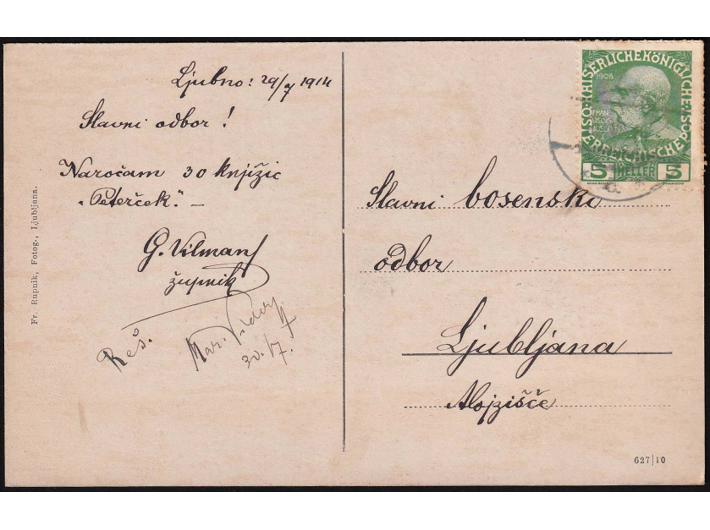 Ljubno: 29/7 1914
Slavni odbor!
Naročam 30 knjižic
"Peterček." –
G. Vilman
župnik
Reš.
30./7.
Fr. Rupnik, Fotog., Ljubljana.
5 HELLER 5
1908
Slavni bosenski
odbor
Ljubljana
Alojzišče
627|10